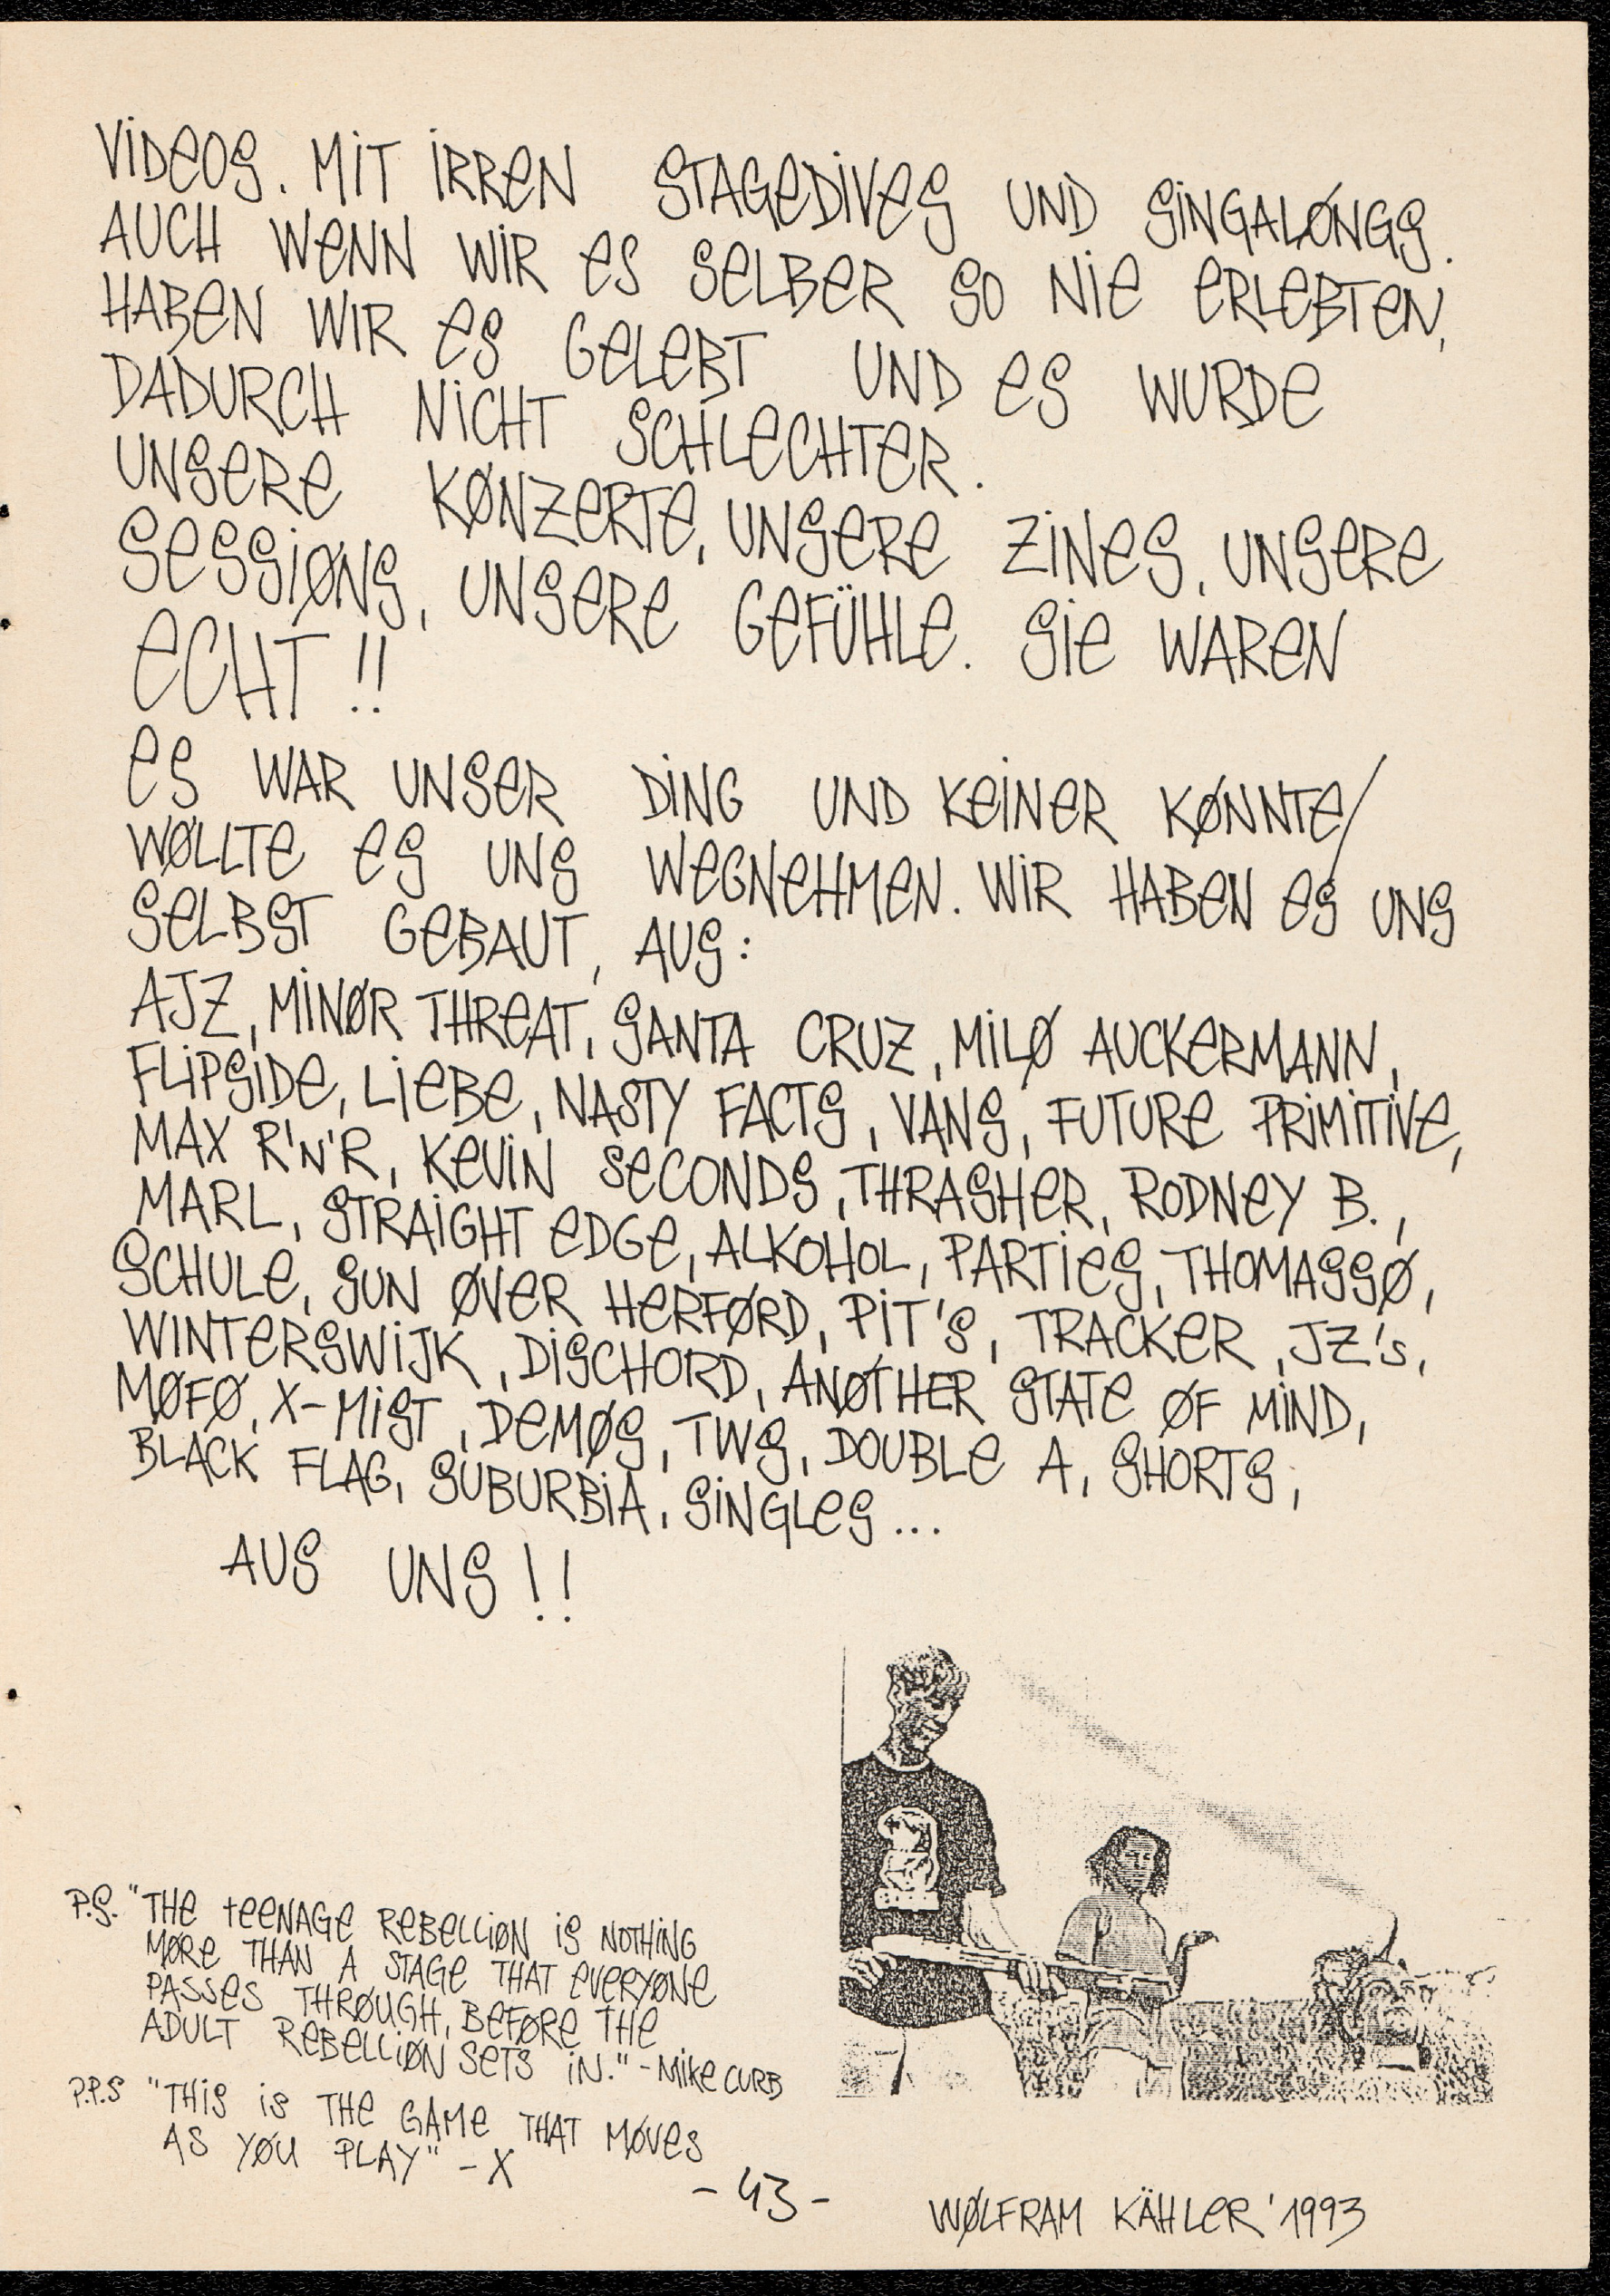 ViDeOS. MiT iRReN STAGeDiVeS UND SiNGALØNGS.
AUCH WeNN WiR eS SeLBeR SO Nie eRLeBTeN,
HABeN WIR eS GeLeBT UND eS WURDe
DADURCH NiCHT SCHLeCHTeR.
UNSeRe KØNZeRTe, UNSeRe ZiNeS, UNSeRe
SeSSiØNS, UNSeRe GeFÜHLe. Sie WAReN
eCHT!!
eS WAR UNSeR DiNG UND KeiNeR KØNNTe/
WØLLTe eS UNS WeGNeHMeN. WiR HABeN eS UNS
SeLBST GeBAUT, AUS:
AJZ, MiNØR THReAT, SANTA CRUZ, MiLØ AUCKeRMANN,
FLiPSiDe, LieBe, NASTY FACTS, VANS, FUTURe PRiMiTiVe,
MAX R'N'R, KeViN SeCONDS, THRASHeR, RODNeY B.,
MARL, STRAiGHT eDGe, ALKOHOL, PARTieS, THOMASSØ,
SCHULe, SUN ØVeR HeRFØRD, PiT'S, TRACKeR, JZ's,
WiNTeRSWiJK, DiSCHORD, ANØTHeR STATe ØF MiND,
MØFØ, X-MiST, DeMØS, TWS, DOUBLe A, SHORTS,
BLACK FLAG, SUBURBiA, SiNGLeS...
AUS UNS!!
P.S. "THe teeNAGe ReBeLLiØN iS NOTHiNG
MØRe THAN A STAGe THAT eVeRYØNe
PASSeS THRØUGH, BeFØRe THe
ADULT ReBeLLiØN SeTS iN." - Mike CURB
P.P.S "THiS iS THe GAMe THAT MØVeS
AS YØU PLAY" - X
- 43 -
WØLFRAM KÄHLeR '1993